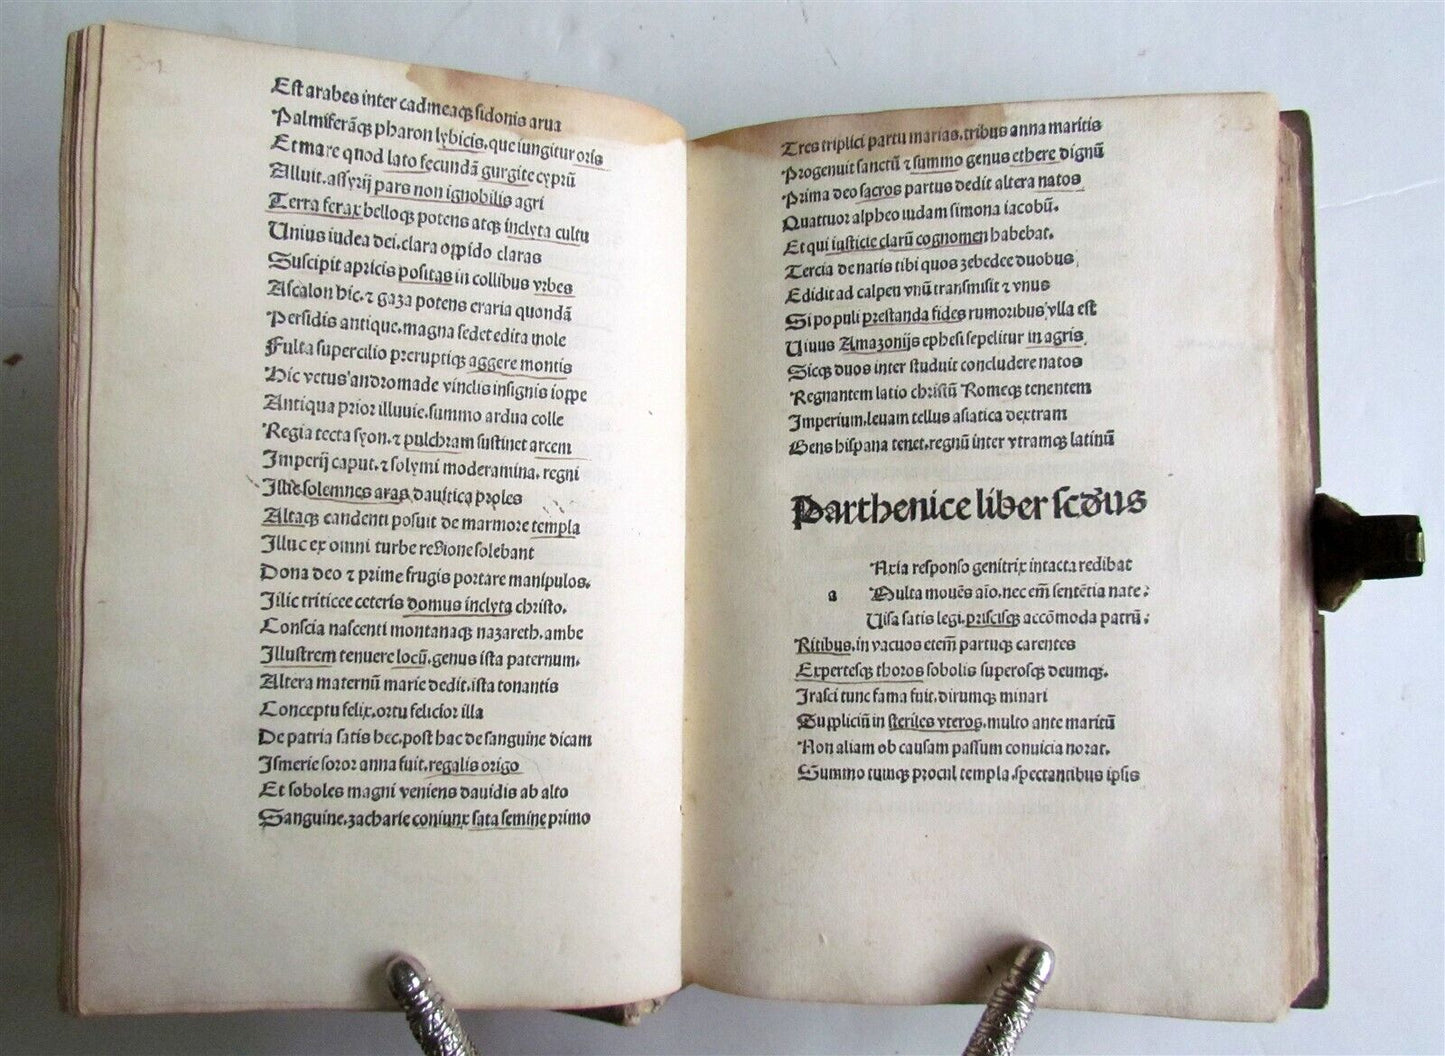 Est arabes inter cadmeaqꝫ sidonis arua
Palmiferāqꝫ pharon lybicis, que iungitur oris
Et mare quod lato fecundā gurgite cyprū
Alluit. assyrij pars non ignobilis agri
Terra ferax belloqꝫ potens atqꝫ inclyta cultu
Unius iudea dei. clara oppido claras
Suscipit apricis positas in collibus vrbes
Ascalon hic. ⁊ gaza potens eraria quondā
Persidis antique. magna sedet edita mole
Fulta supercilio preruptiqꝫ aggere montis
Hic vetus andromade vinclis insignis ioppe
Antiqua prior illuuie. summo ardua colle
Regia tecta syon. ⁊ pulchram sustinet arcem
Imperij caput. ⁊ solymi moderamina. regni
Illic solemnes aras dauitica proles
Altaqꝫ candenti posuit de marmore templa
Illuc ex omni turbe regione solebant
Dona deo ⁊ prime frugis portare manipulos.
Illic triticee ceteris domus inclyta christo.
Conscia nascenti montanaqꝫ nazareth. ambe
Illustrem tenuere locū. genus ista paternum.
Altera maternū marie dedit. ista tonantis
Conceptu felix. ortu felicior illa
De patria satis hec. post hac de sanguine dicam
Ismerie soror anna fuit. regalis origo
Et soboles magni veniens dauidis ab alto
Sanguine. zacharie coniunx sata semine primo
Tres triplici partu marias. tribus anna maritis
Progenuit sanctū ⁊ summo genus ethere dignū
Prima deo sacros partus dedit altera natos
Quattuor alpheo iudam simona iacobū.
Et qui iusticie clarū cognomen habebat.
Tercia de natis tibi quos zebedee duobus
Edidit ad calpen vnū transmisit ⁊ vnus
Si populi prestanda fides rumoribus vlla est
Uiuus Amazonijs ephesi sepelitur in agris
Sicqꝫ duos inter studuit concludere natos
Regnantem latio christū Romeqꝫ tenentem
Imperium. leuam tellus asiatica dextram
Gens hispana tenet. regnū inter vtramqꝫ latinū
Parthenice liber scđus
Axia responso genitrix intacta redibat
a Multa mouēs aīo. nec em̄ sentētia nate:
Uisa satis legi. priscisqꝫ accōmoda patrū:
Ritibus. in vacuos etem̄ partuqꝫ carentes
Expertesqꝫ thoros sobolis superosqꝫ deumqꝫ.
Irasci tunc fama fuit. dirumqꝫ minari
Suppliciū in steriles vteros. multo ante maritū
Non aliam ob causam passum conuicia norat.
Summo tumqꝫ procul templa spectantibus ipsis